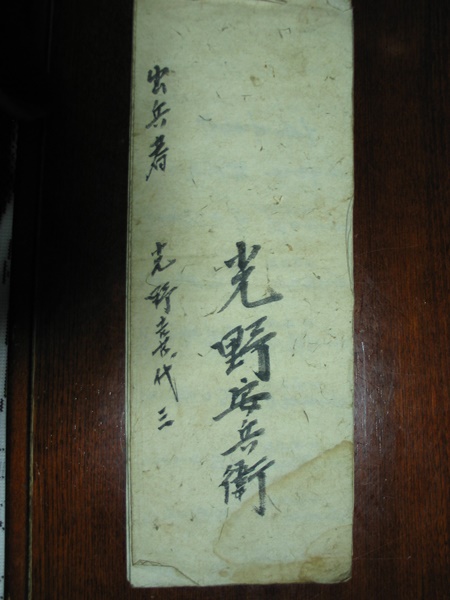 光野安兵衛
出兵者 光野喜代三